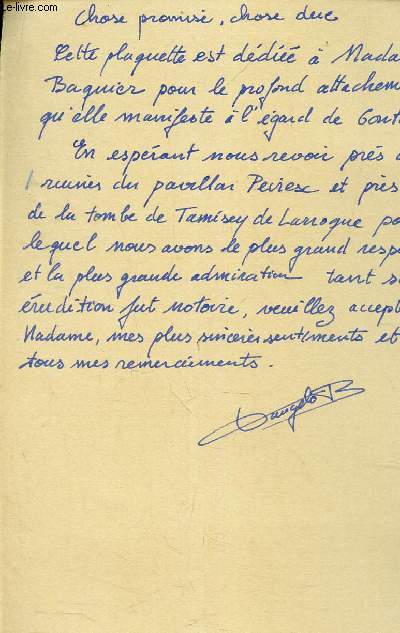 Chose promise, chose due
Cette plaquette est dédiée à Mada
Baquier pour le profond attacheme
qu'elle manifeste à l'égard de Gont
En espérant nous revoir près d
ruines du pavillon Peiresc et près
de la tombe de Tamisey de Larroque po
lequel nous avons le plus grand respe
et la plus grande admiration tant s
érudition fut notoire, veuillez accept
Madame, mes plus sincères sentiments et
tous mes remerciements.
Dangelo B
e-livre.com